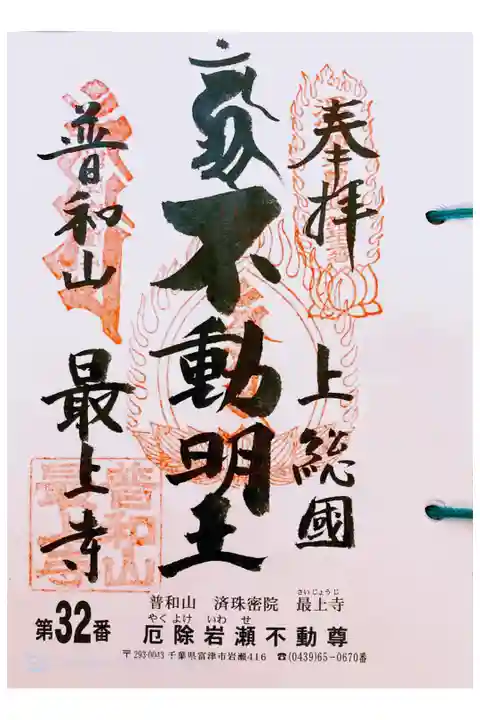 奉拝
上総國
不動明王
普和山
最上寺
普和山
最上寺
普和山 済珠密院 最上寺
さいじょうじ
第32番
やくよけ いわせ
厄除岩瀬不動尊
〒293-0043 千葉県富津市岩瀬416 ☎(0439)65-0670番